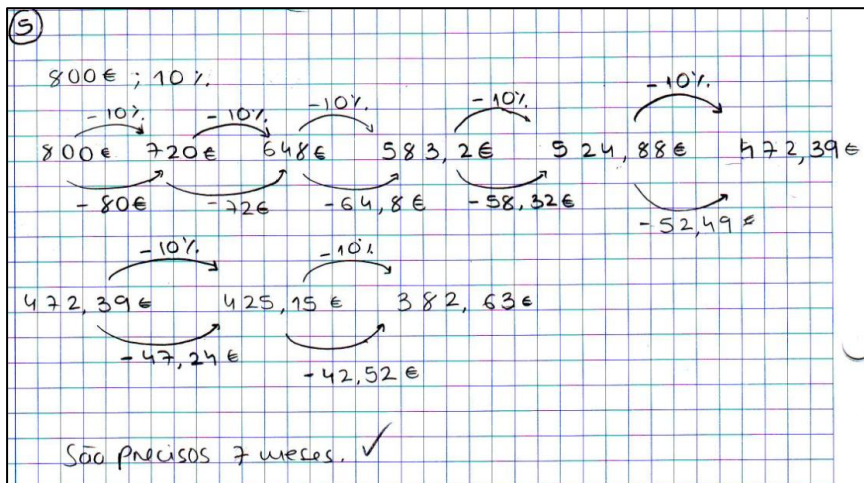 5
800€ ; 10%.
-10%. -10%. -10%. -10%. -10%.
800€ 720€ 648€ 583,2€ 524,88€ 472,39€
-80€ -72€ -64,8€ -58,32€ -52,49€
-10%. -10%.
472,39€ 425,15€ 382,63€
-47,24€ -42,52€
São precisos 7 meses. ✓